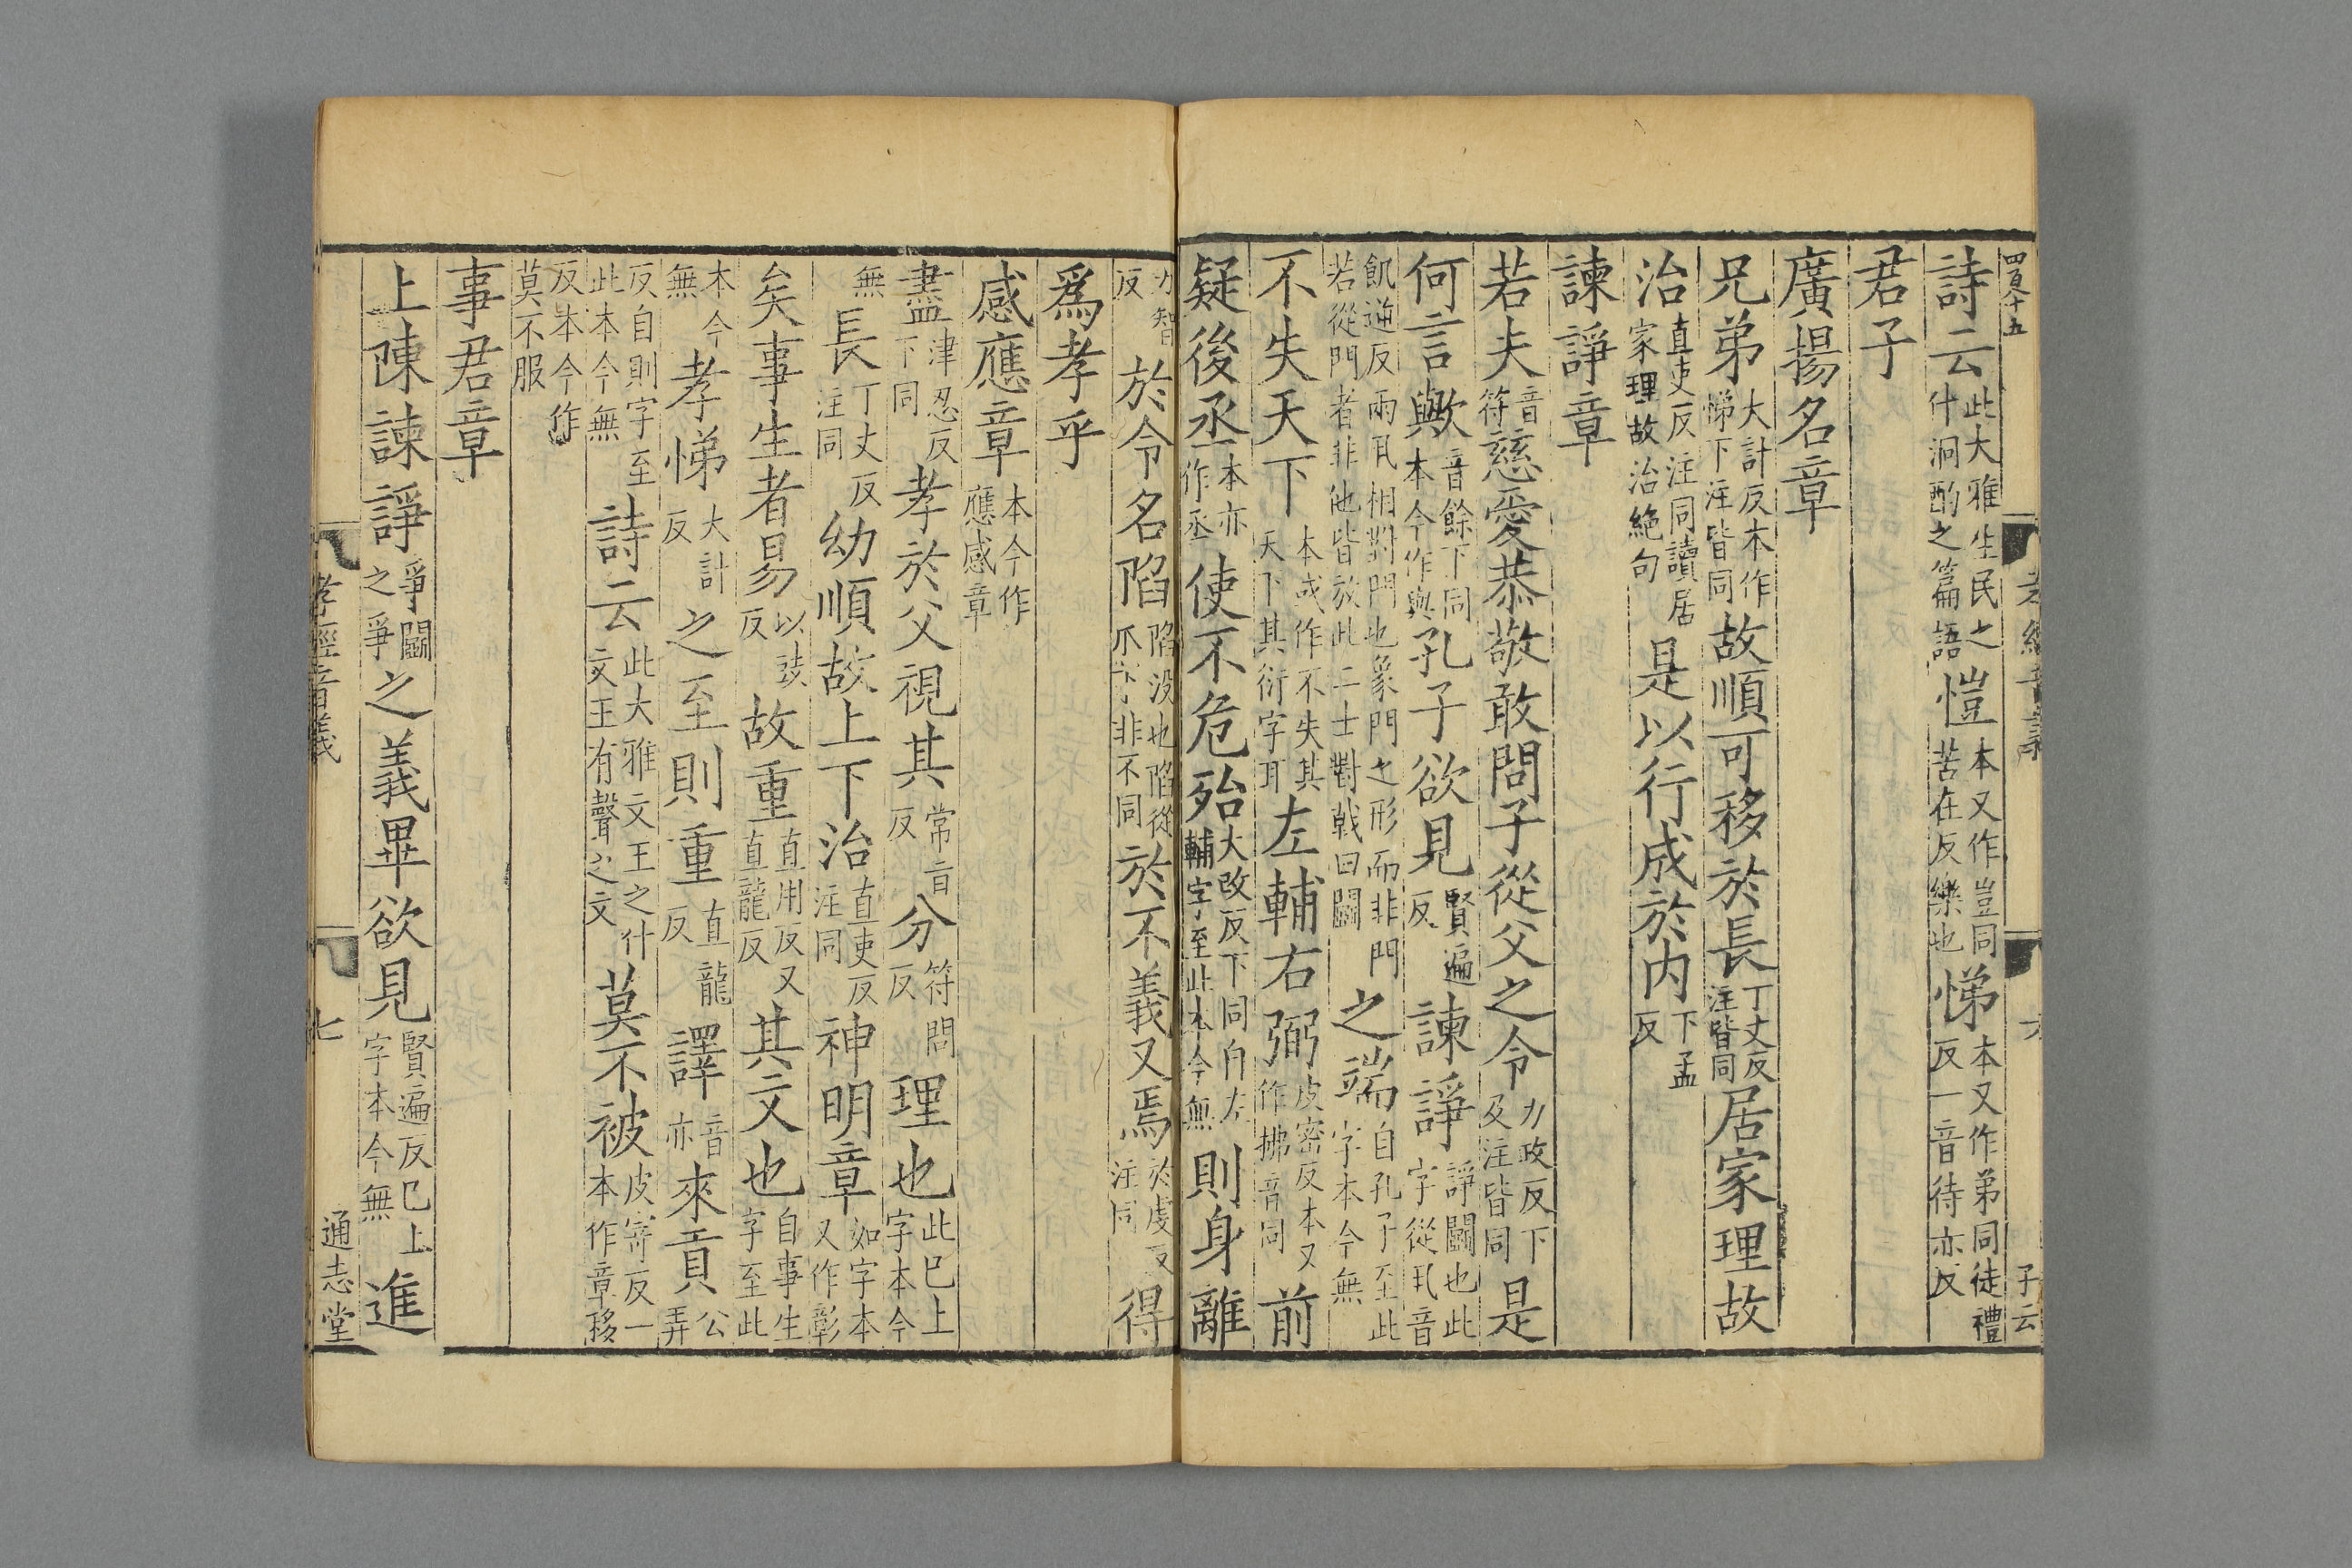 詩云此大雅生民之什泂酌之篇語愷本又作豈同苦在反樂也悌本又作弟同徒禮反一音待亦反
君子
廣揚名章
兄弟大計反本作悌下注皆同故順可移於長丁丈反注皆同居家理故
治直吏反注同讀居家理故治絕句是以行成於內下孟反
諫諍章
若夫音符慈愛恭敬敢問子從父之令力政反下及注皆同是
何言歟音餘下同本今作與孔子欲見賢遍反諫諍諍鬬也此字從丮音
飢逆反兩丮相對門也象門之形而非門若從門者非他皆放此二士對戟曰鬬之端自孔子至此字本今無
不失天下本或作不失其天下其衍字耳左輔右弼皮密反本又作拂音同前
疑後丞本亦作丞使不危殆大改反下同自左輔字至此本今無則身離
力智反於令名陷陷沒也陷從爪非不同於不義又焉於虔反注同得
爲孝乎
感應章本今作應感章
盡津忍反下同孝於父視其常旨反分符問反理也此巳上字本今
無長丁丈反注同幼順故上下治直吏反注同神明章如字本又作彰
矣事生者易以豉反故重直用反又直龍反其文也自事生字至此
本今無孝悌大計反之至則重直龍反譯音亦來貢公弄
反自則字至此本今無詩云此大雅文王之什文王有聲之文莫不被皮寄反一本作章移
反本今作莫不服
事君章
上陳諫諍爭鬬之爭之義畢欲見賢遍反巳上字本今無進
孝經音義
七
通志堂